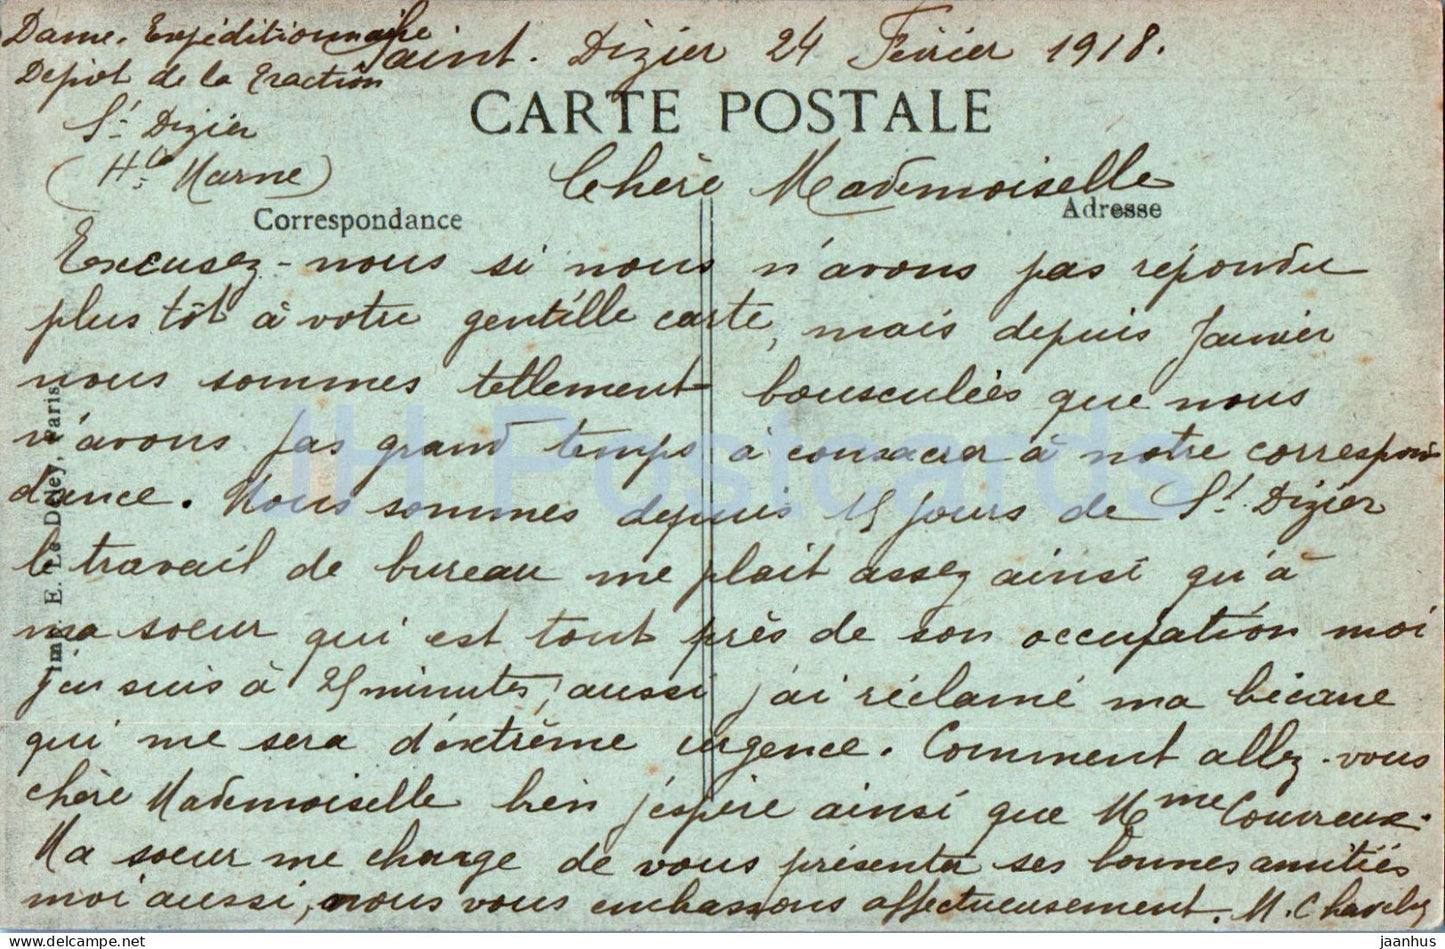 Dame. Expéditionnaire
Saint. Dizier 24 Février 1918.
Dépôt de la Traction
St Dizier
(Hte Marne)
CARTE POSTALE
Chère Mademoiselle
Correspondance
Adresse
Excusez-nous si nous n'avons pas répondu
plus tôt à votre gentille carte, mais depuis Janvier
nous sommes tellement bousculées que nous
n'avons pas grand temps à consacrer à notre correspon
dance. Nous sommes depuis 15 jours de St Dizier
le travail de bureau me plait assez ainsi qu'à
ma soeur qui est tout près de son occupation moi
j'en suis à 25 minutes, aussi j'ai réclamé ma bécane
qui me sera d'extrême urgence. Comment allez-vous
chère Mademoiselle bien j'espère ainsi que Mme Couvreux.
Ma soeur me charge de vous présenter ses bonnes amitiés
moi aussi, nous vous embrassons affectueusement. M.
Imp. E. Le Deley, Paris
IH Postcards
jaanhus
delcampe.net